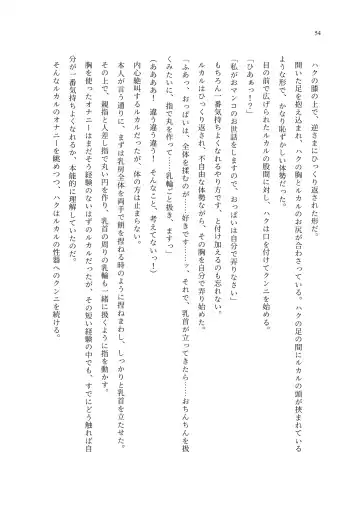 54
ハクの膝の上で、逆さまにひっくり返された形だ。
開いた足を抱え込まれ、ハクの胸とルカルのお尻が合わさっている。ハクの足の間にルカルの頭が挟まされている
ような形で、かなり恥ずかしい体勢だった。
目の前で広げられたルカルの股間に対し、ハクは口を付けてクンニを始めた。
「ひあぁっ！？」
「私がおマンコのお世話をしますので、おっぱいは自分で弄りなさい」
もちろん一番気持ちよくなれるやり方で、と付け加えるのも忘れない。
ルカルはひっくり返され、不自由な体勢ながら、その胸を自分で弄り始めた。
「ふあっ、おっぱいは、全体を揉むのが……好きです……っ。それで、乳首が立ってきたら……おちんちんを扱
くみたいに、指で丸を作って……乳輪ごと扱き、ますっ」
（ああああ！　違う違う違う！　そんなこと、考えてないっ！）
内心絶叫するルカルだったが、体の方は止まらない。
本人が言う通りに、まずは乳房全体を両手で餅を捏ねる時のように捏ねまわし、しっかりと乳首を立たせた。
その上で、親指と人差し指で丸い円を作り、乳首の周りの乳輪も一緒に扱くように指を動かす。
胸を使ったオナニーはまだそう経験のないはずのルカルだったが、その短い経験の中でも、すでにどう触れば自
分が一番気持ちよくなれるのか、本能的に理解していたのだ。
そんなルカルのオナニーを眺めつつ、ハクはルカルの性器へのクンニを続ける。